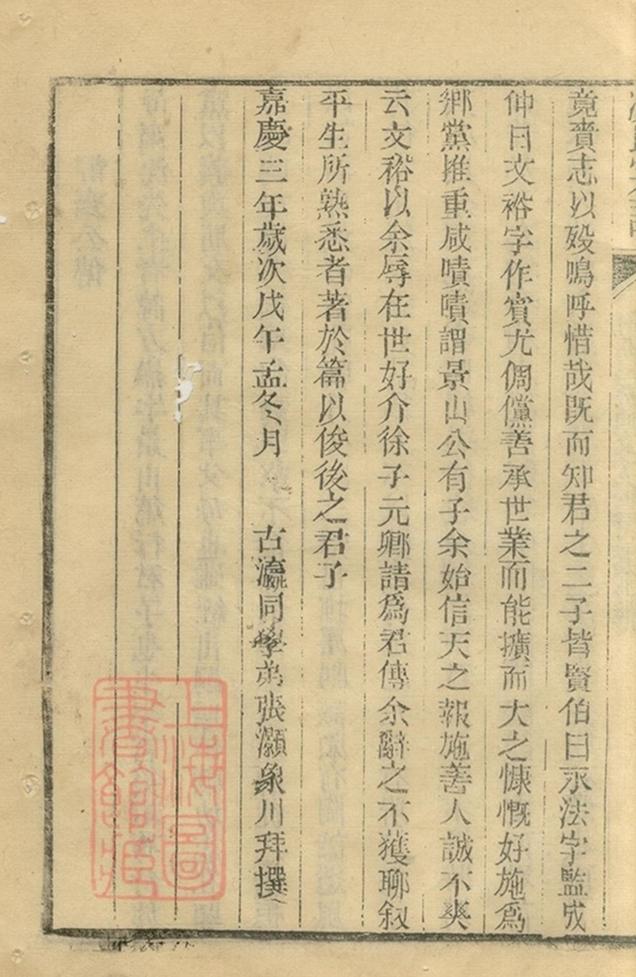 竟賫志以歿鳴呼惜哉既而知君之二子皆賢伯曰永法字監成
仲曰文裕字作賓尤倜儻善承世業而能擴而大之慷慨好施爲
鄉黨推重咸嘖嘖謂景山公有子余始信天之報施善人誠不爽
云文裕以余辱在世好介徐子元卿請爲君傳余辭之不獲聊叙
平生所熟悉者著於篇以俊後之君子
嘉慶三年歲次戊午孟冬月　古瀛同學弟張灝象川拜撰
上海圖書館藏